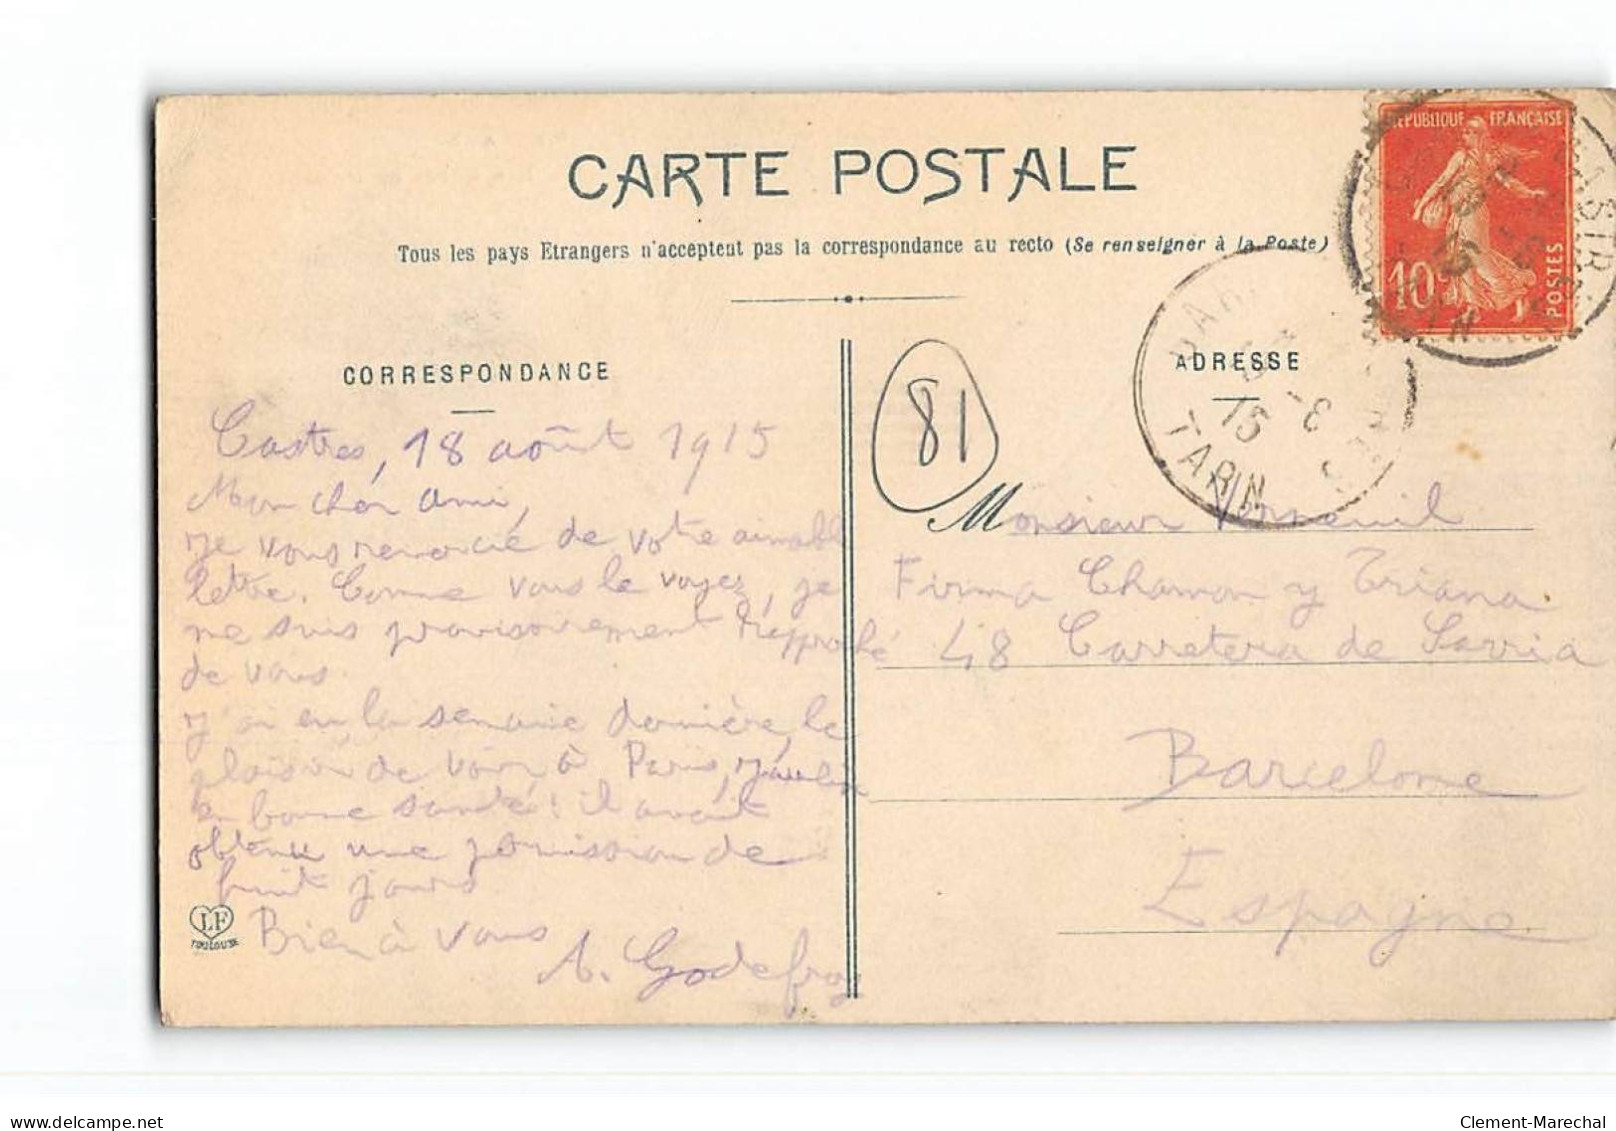 CARTE POSTALE
Tous les pays Etrangers n'acceptent pas la correspondance au recto (Se renseigner à la Poste)
REPUBLIQUE FRANÇAISE
10c
POSTES
CASTR
TARN
CORRESPONDANCE
ADRESSE
81
15 -8
TARN
Castres, 18 août 1915
Mon cher Ami,
je vous remercie de votre aimable
lettre. Comme vous le voyez, je
me suis provisoirement rapproché
de vous.
J'ai eu la semaine dernière, le
plaisir de voir, à Paris,
en bonne santé! il avait
obtenu une permission de
huit jours
Bien à vous
A. Godefroy
LF
TOULOUSE
Monsieur Verneuil
Firma Chamon y Triana
48 Carretera de Sarria
Barcelone
Espagne
delcampe.net
Clement-Marechal